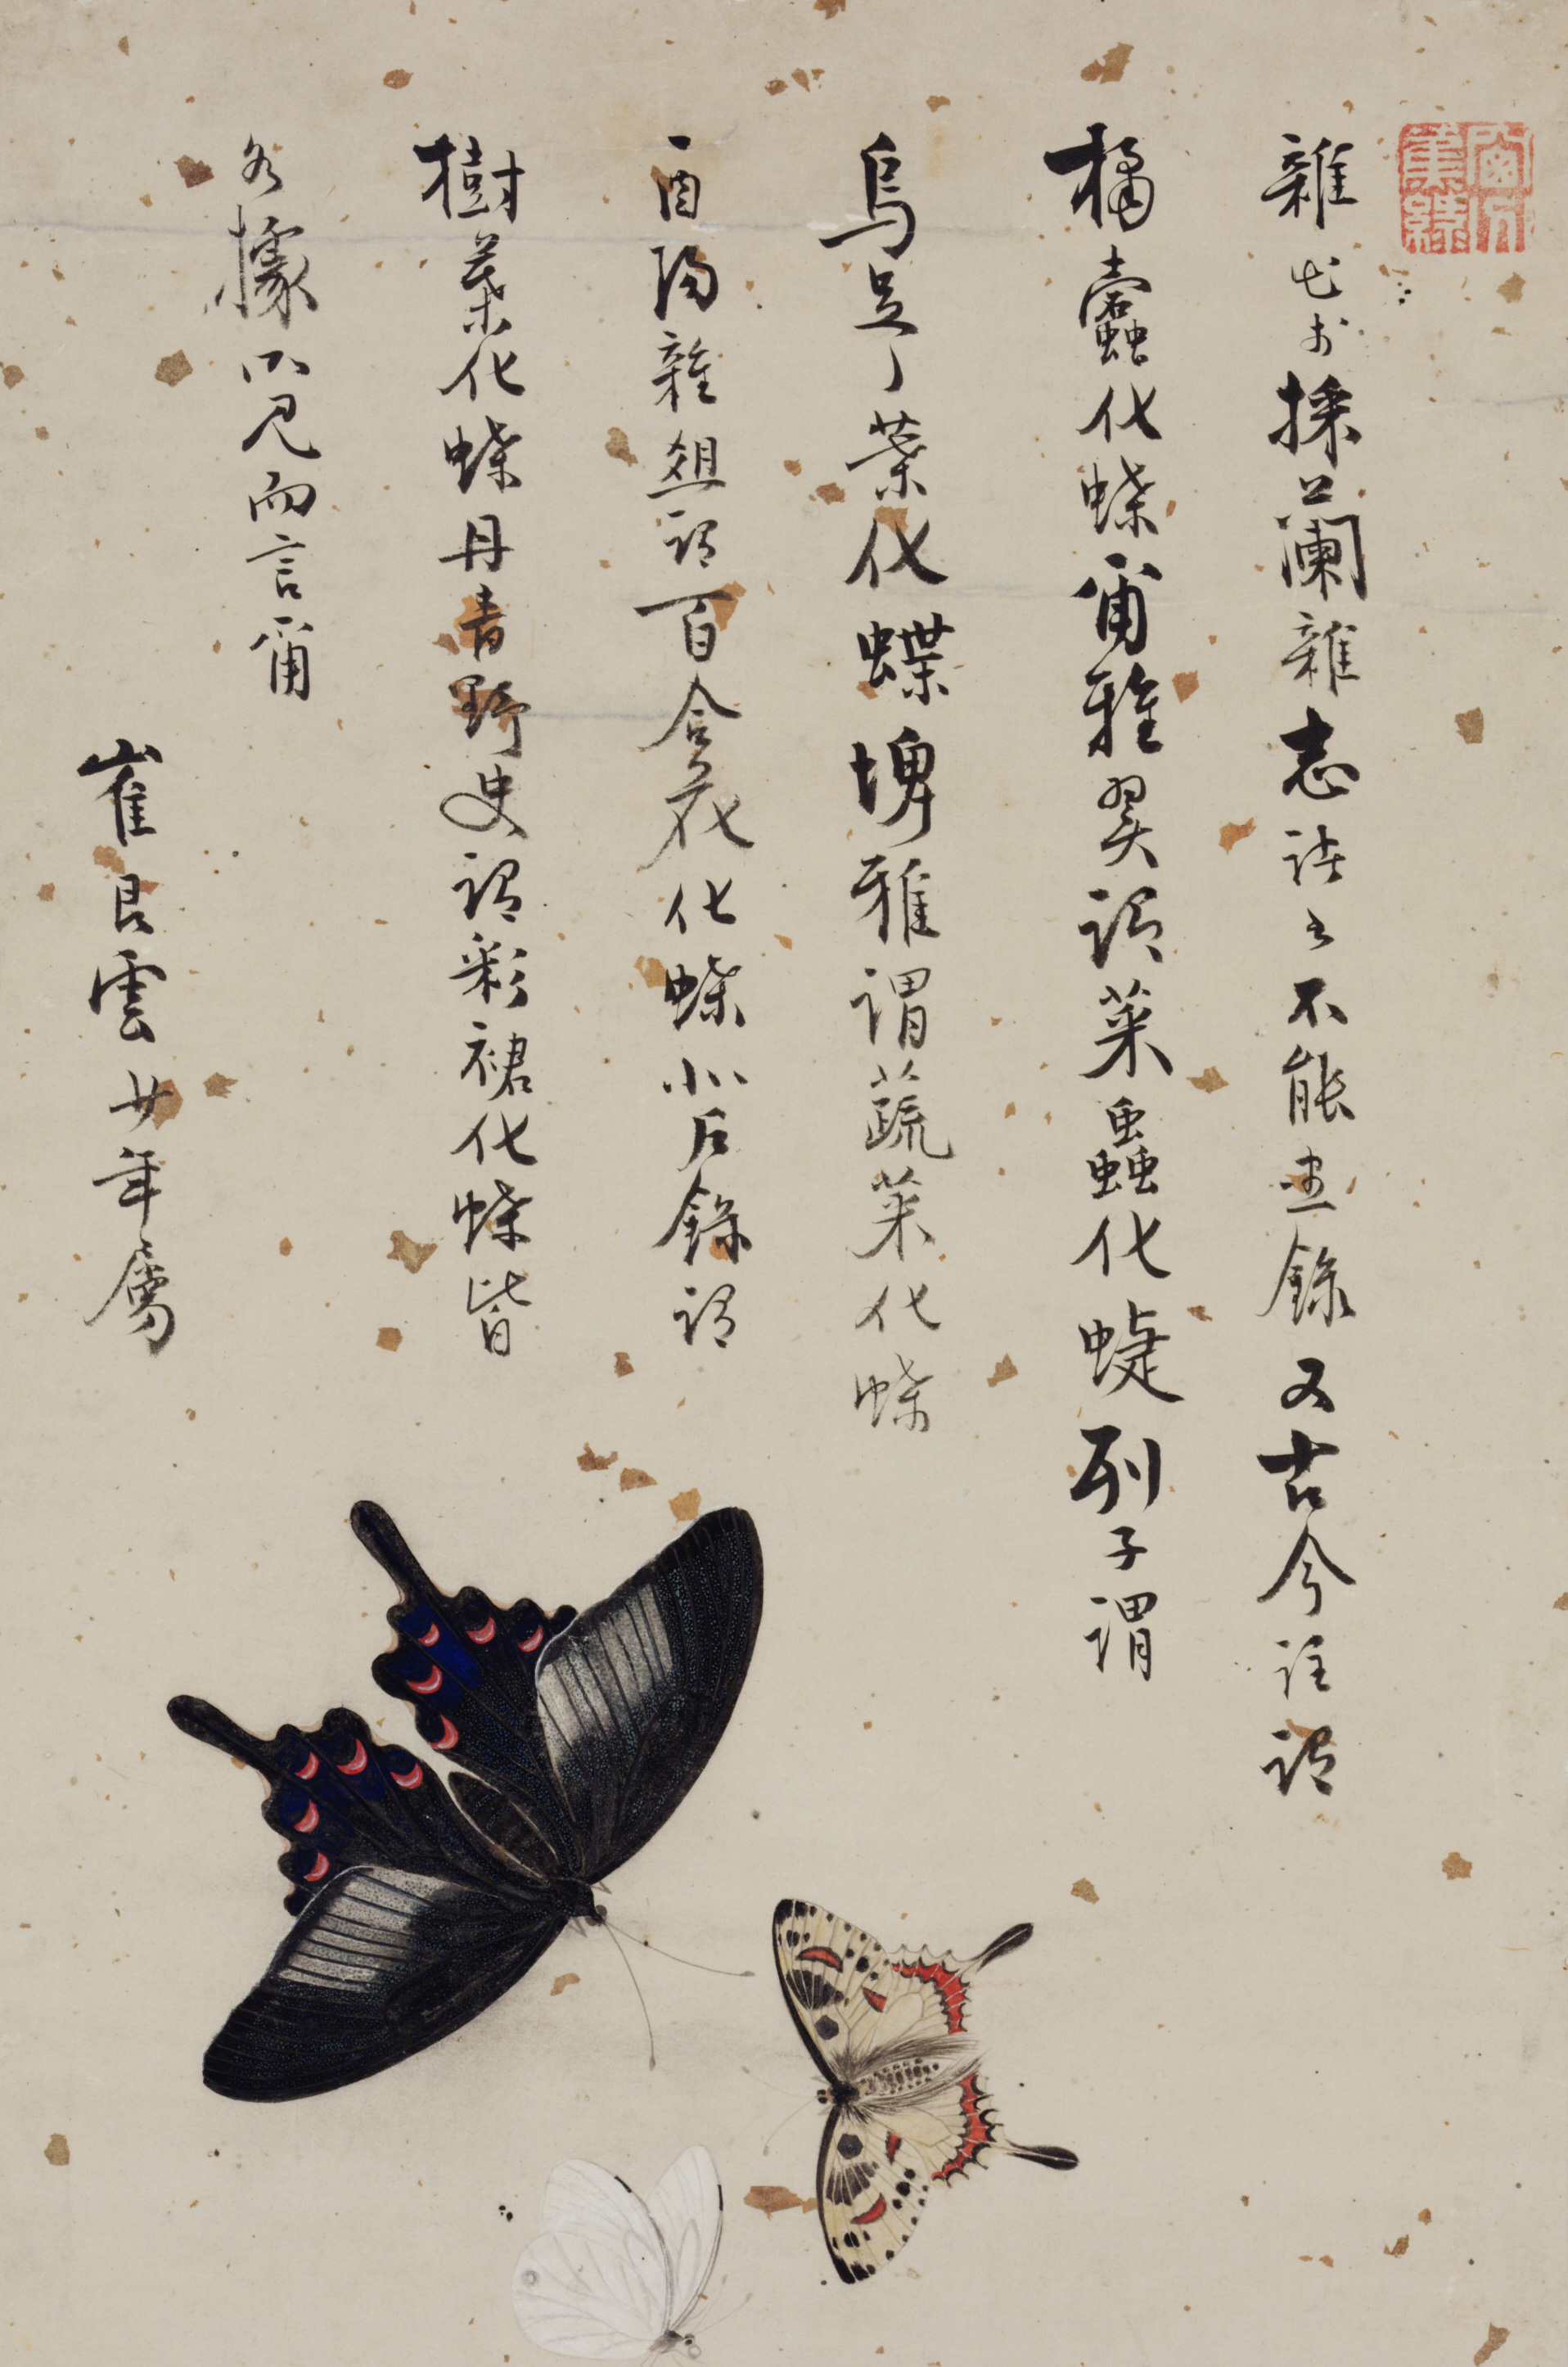 雜出於採蘭雜志諸書不能盡錄又古今註謂
橘蠹化蝶爾雅翼謂菜蟲化蜨列子謂
烏足之葉化蝶埤雅謂蔬菜化蝶
酉陽雜俎謂百合花化蝶北户錄謂
樹葉化蝶丹青野史謂彩裙化蝶皆
各據所見而言爾
崔艮雲少年屬